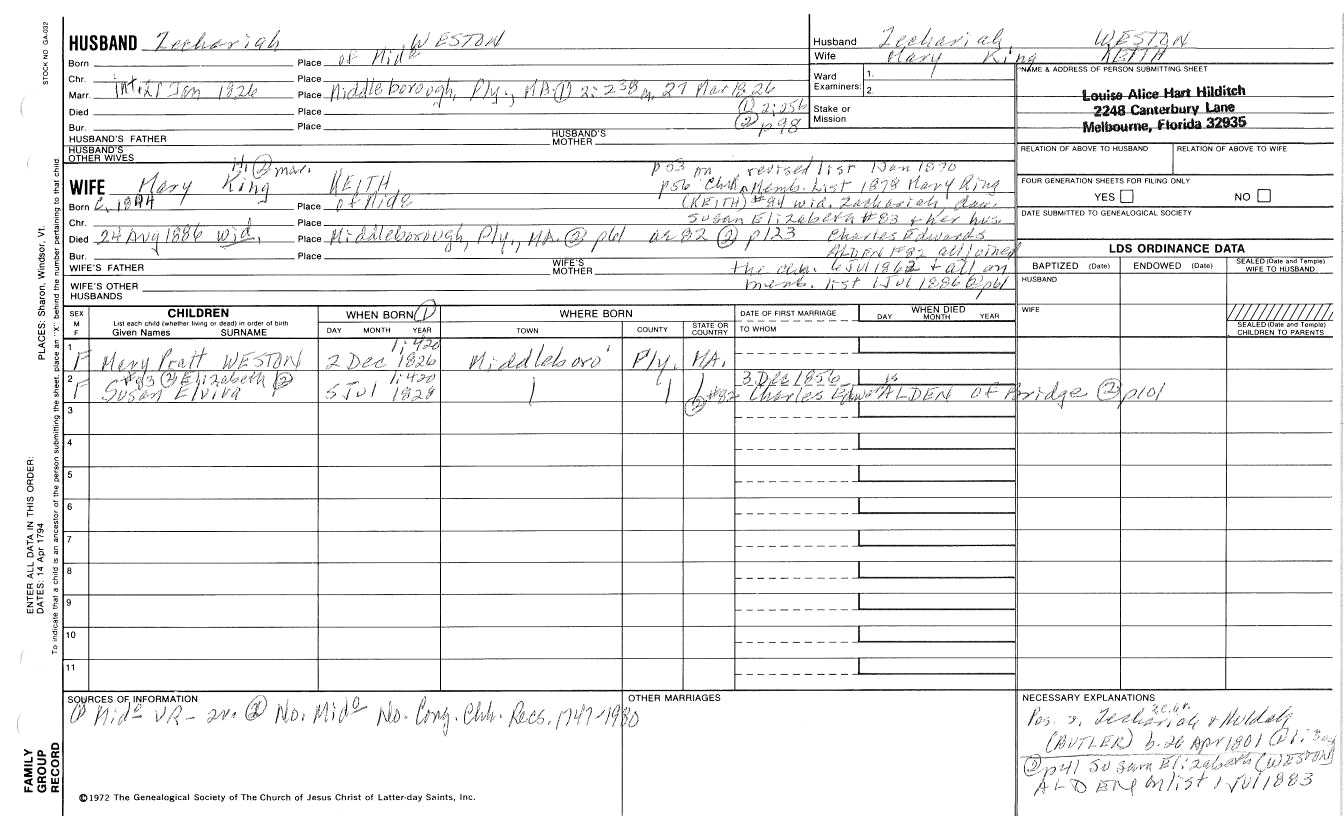 STOCK NO. GA-032
HUSBAND Zechariah WESTON
Born Place of Mid^o
Chr. Place
Marr. int. 21 Jan 1826 Place Middleborough, Ply., MA. ① 2:238 m. 27 Mar 1826
Died Place ① 2:256
Bur. Place ② p98
HUSBAND'S FATHER HUSBAND'S MOTHER
HUSBAND'S OTHER WIVES
Husband Zechariah WESTON
Wife Mary King KEITH
Ward Examiners: 1.
2.
Stake or Mission
NAME & ADDRESS OF PERSON SUBMITTING SHEET
Louise Alice Hart Hilditch
2248 Canterbury Lane
Melbourne, Florida 32935
RELATION OF ABOVE TO HUSBAND RELATION OF ABOVE TO WIFE
FOUR GENERATION SHEETS FOR FILING ONLY
YES NO
DATE SUBMITTED TO GENEALOGICAL SOCIETY
LDS ORDINANCE DATA
BAPTIZED (Date) ENDOWED (Date) SEALED (Date and Temple) WIFE TO HUSBAND
HUSBAND
WIFE
SEALED (Date and Temple) CHILDREN TO PARENTS
② mar. p53 on revised list 1 Jan 1870
WIFE Mary King KEITH p56 Chh. Memb. List 1878 Mary King
Born Place of Mid^o (KEITH) #84 wid. Zechariah dau.
Chr. Place Susan Elizabeth #83 & her hus.
Died 24 Aug 1886 wid. Place Middleborough, Ply., MA. ② p61 ae 82 ② p123 Charles Edwards
Bur. Place ALDEN #82 all joined
WIFE'S FATHER WIFE'S MOTHER the chh. 6 Jul 1862 & all on
WIFE'S OTHER HUSBANDS memb. list 1 Jul 1886 ② p61
SEX M F CHILDREN List each child (whether living or dead) in order of birth Given Names SURNAME
WHEN BORN ① DAY MONTH YEAR
WHERE BORN TOWN COUNTY STATE OR COUNTRY
DATE OF FIRST MARRIAGE TO WHOM
WHEN DIED DAY MONTH YEAR
1 F Mary Pratt WESTON 2 Dec 1826 1:420 Middleboro' Ply. MA.
2 F #83 ② Elizabeth ② Susan Elvira 5 Jul 1828 1:420 3 Dec 1856 ② #82 Charles Edws ALDEN of Bridge ② p101
3
4
5
6
7
8
9
10
11
SOURCES OF INFORMATION
① Mid^o VR - 2v. ② No. Mid^o No. Cong. Chh. Recs. 1747-1980
OTHER MARRIAGES
NECESSARY EXPLANATIONS
Pos. s. Zechariah & Huldah
(BUTLER) b. 26 Apr 1801
② p41 Susan Elizabeth (WESTON)
ALDEN on list 1 Jul 1883
©1972 The Genealogical Society of The Church of Jesus Christ of Latter-day Saints, Inc.
FAMILY GROUP RECORD
ENTER ALL DATA IN THIS ORDER:
DATES: 14 Apr 1794
PLACES: Sharon, Windsor, Vt.
To indicate that a child is an ancestor of the person submitting the sheet, place an "X" behind the number pertaining to that child